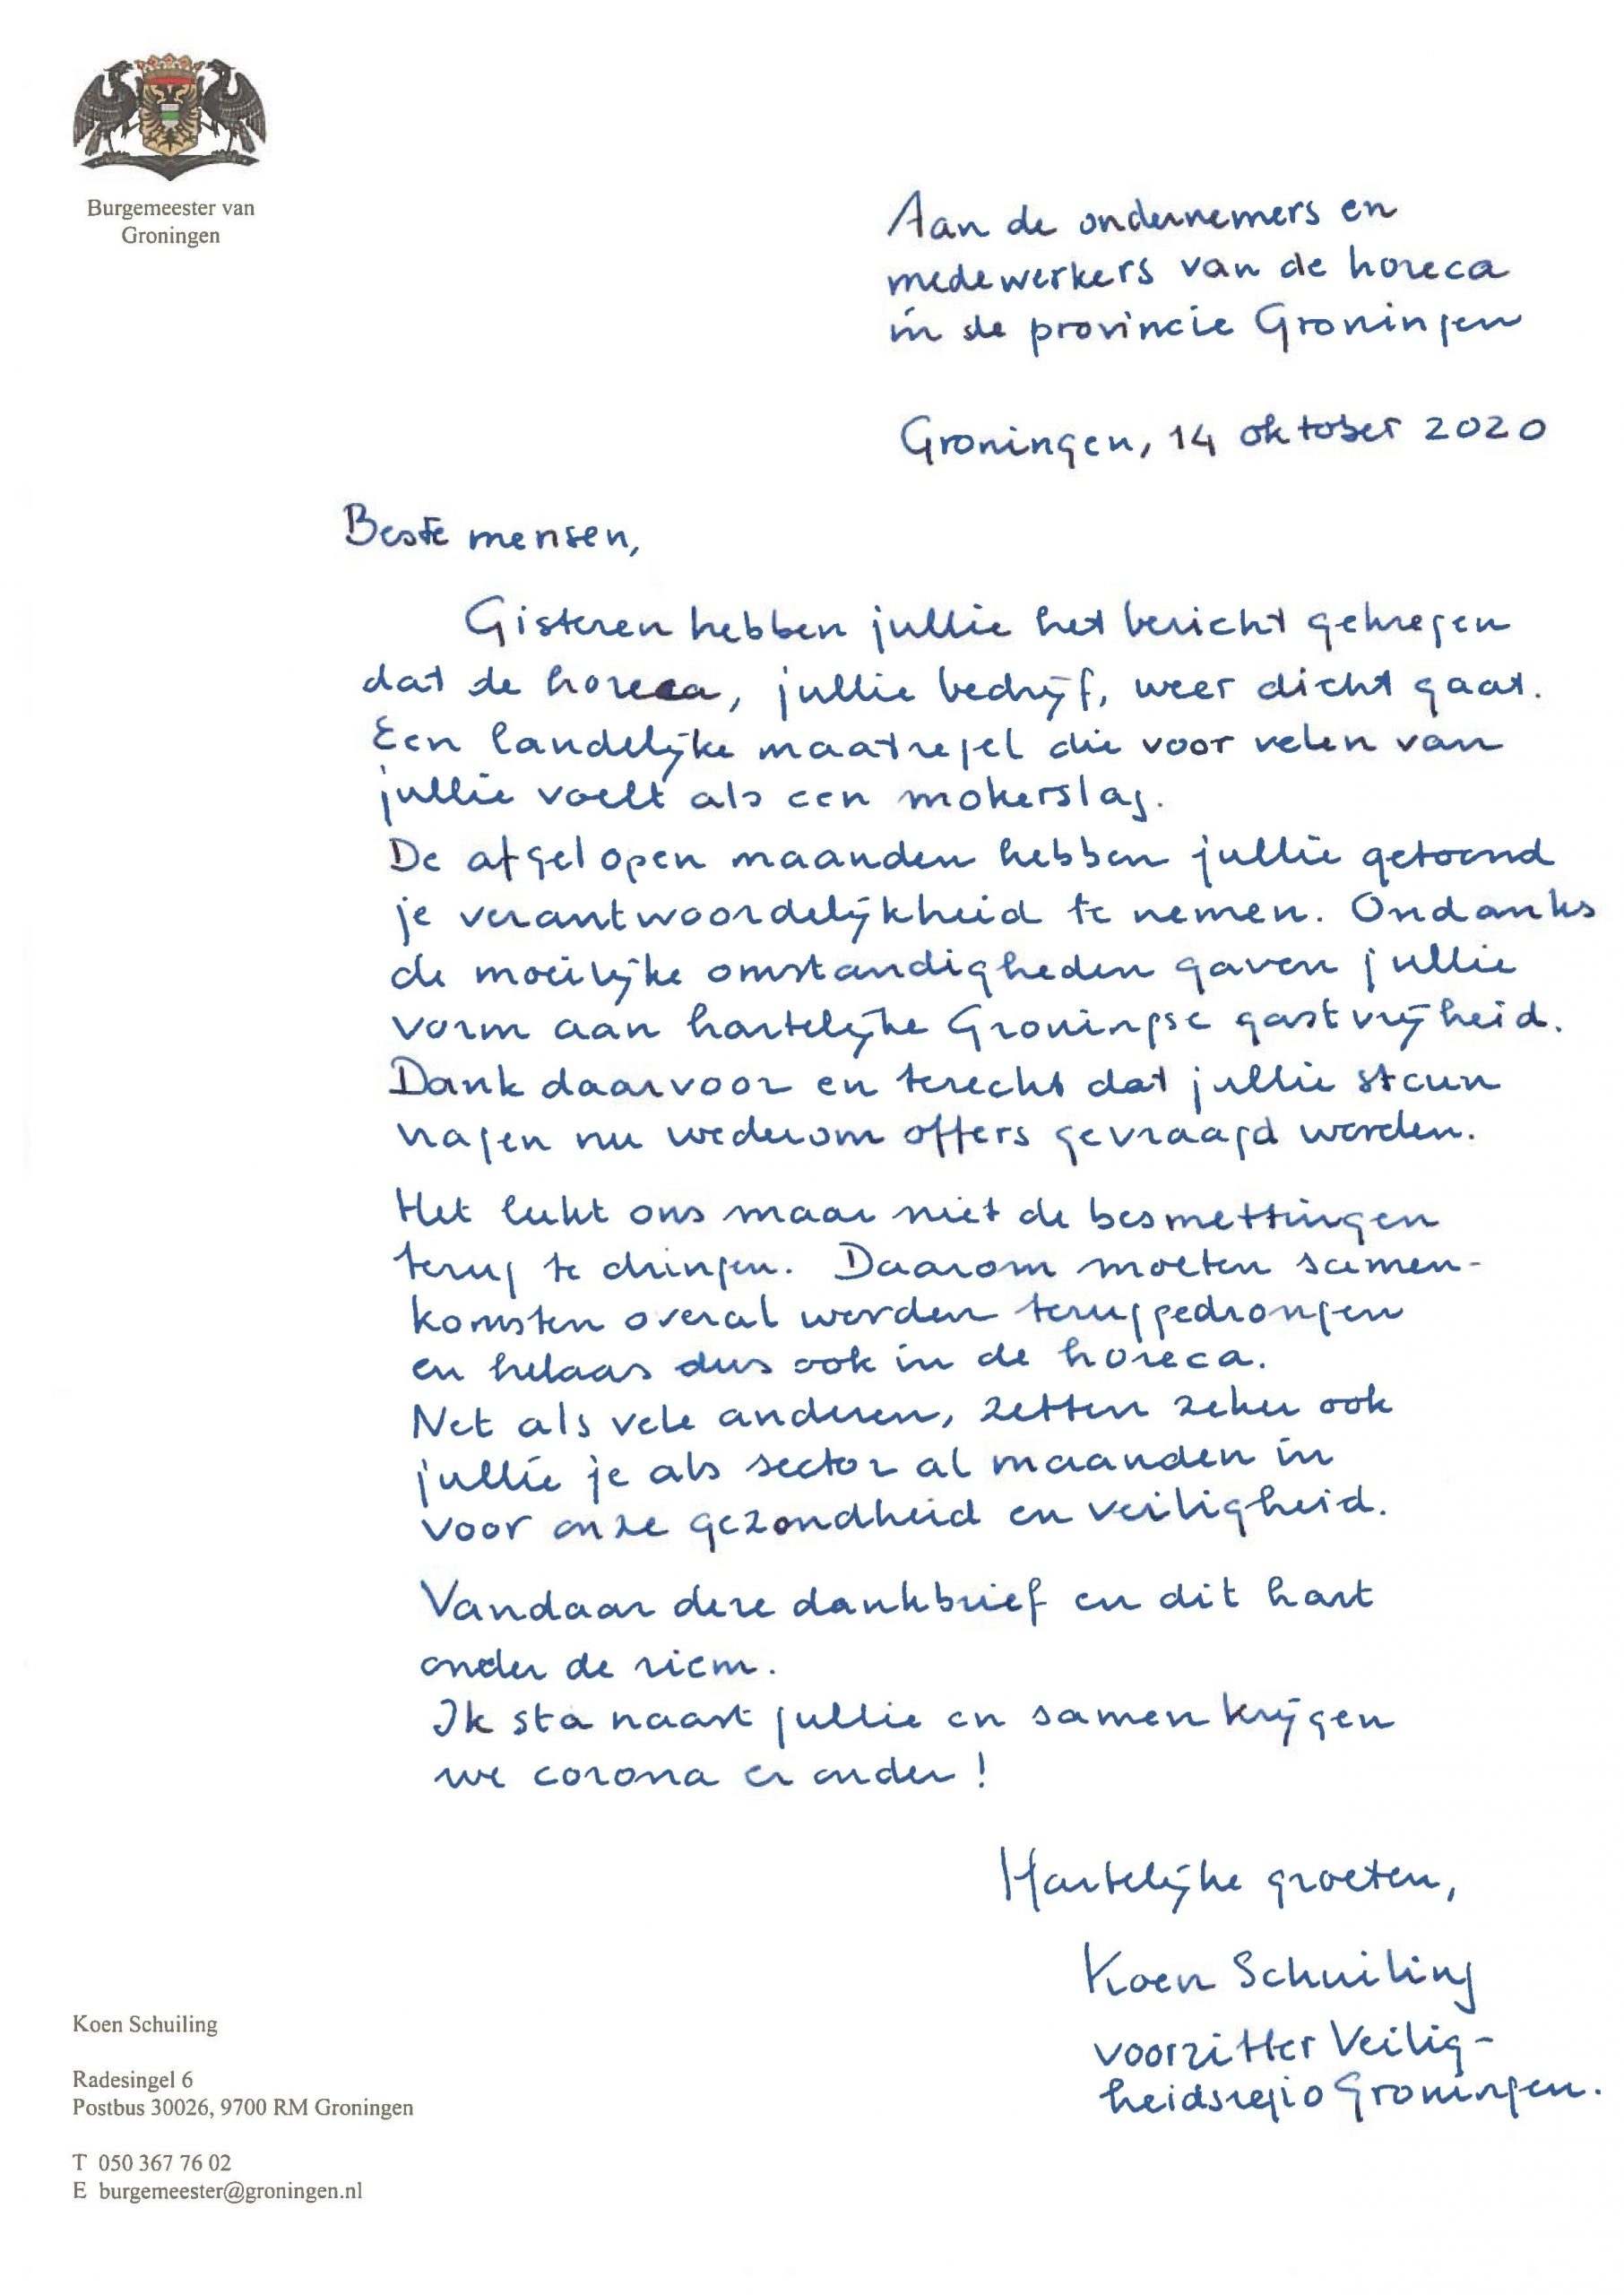 Burgemeester van
Groningen
Aan de ondernemers en
medewerkers van de horeca
in de provincie Groningen
Groningen, 14 oktober 2020
Beste mensen,
Gisteren hebben jullie het bericht gekregen
dat de horeca, jullie bedrijf, weer dicht gaat.
Een landelijke maatregel die voor velen van
jullie voelt als een mokerslag.
De afgelopen maanden hebben jullie getoond
je verantwoordelijkheid te nemen. Ondanks
de moeilijke omstandigheden gaven jullie
vorm aan hartelijke Groningse gastvrijheid.
Dank daarvoor en terecht dat jullie steun
vragen nu wederom offers gevraagd worden.
Het lukt ons maar niet de besmettingen
terug te dringen. Daarom moeten samen-
komsten overal worden teruggedrongen
en helaas dus ook in de horeca.
Net als vele anderen, zetten zeker ook
jullie je als sector al maanden in
voor onze gezondheid en veiligheid.
Vandaar deze dankbrief en dit hart
onder de riem.
Ik sta naast jullie en samen krijgen
we corona er onder!
Hartelijke groeten,
Koen Schuiling
voorzitter Veilig-
heidsregio Groningen.
Koen Schuiling
Radesingel 6
Postbus 30026, 9700 RM Groningen
T 050 367 76 02
E burgemeester@groningen.nl